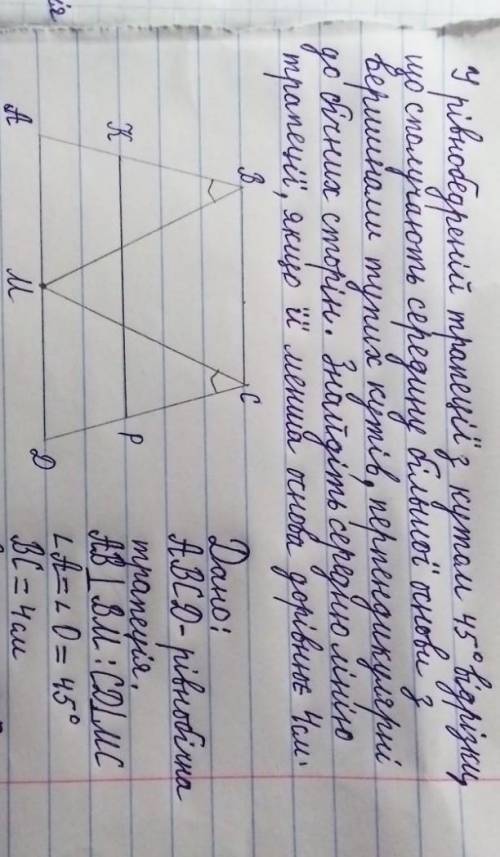 У рівнобедреній трапеції з кутом 45° відрізки,
що сполучають середину більшої основи з
вершинами тупих кутів, перпендикулярні
до бічних сторін. Знайдіть середню лінію
трапеції, якщо її менша основа дорівнює 4см.
B
C
K
P
A
M
D
Дано:
ABCD - рівнобічна
трапеція,
AB⊥BM; CD⊥MC
∠A=∠D=45°
BC=4см